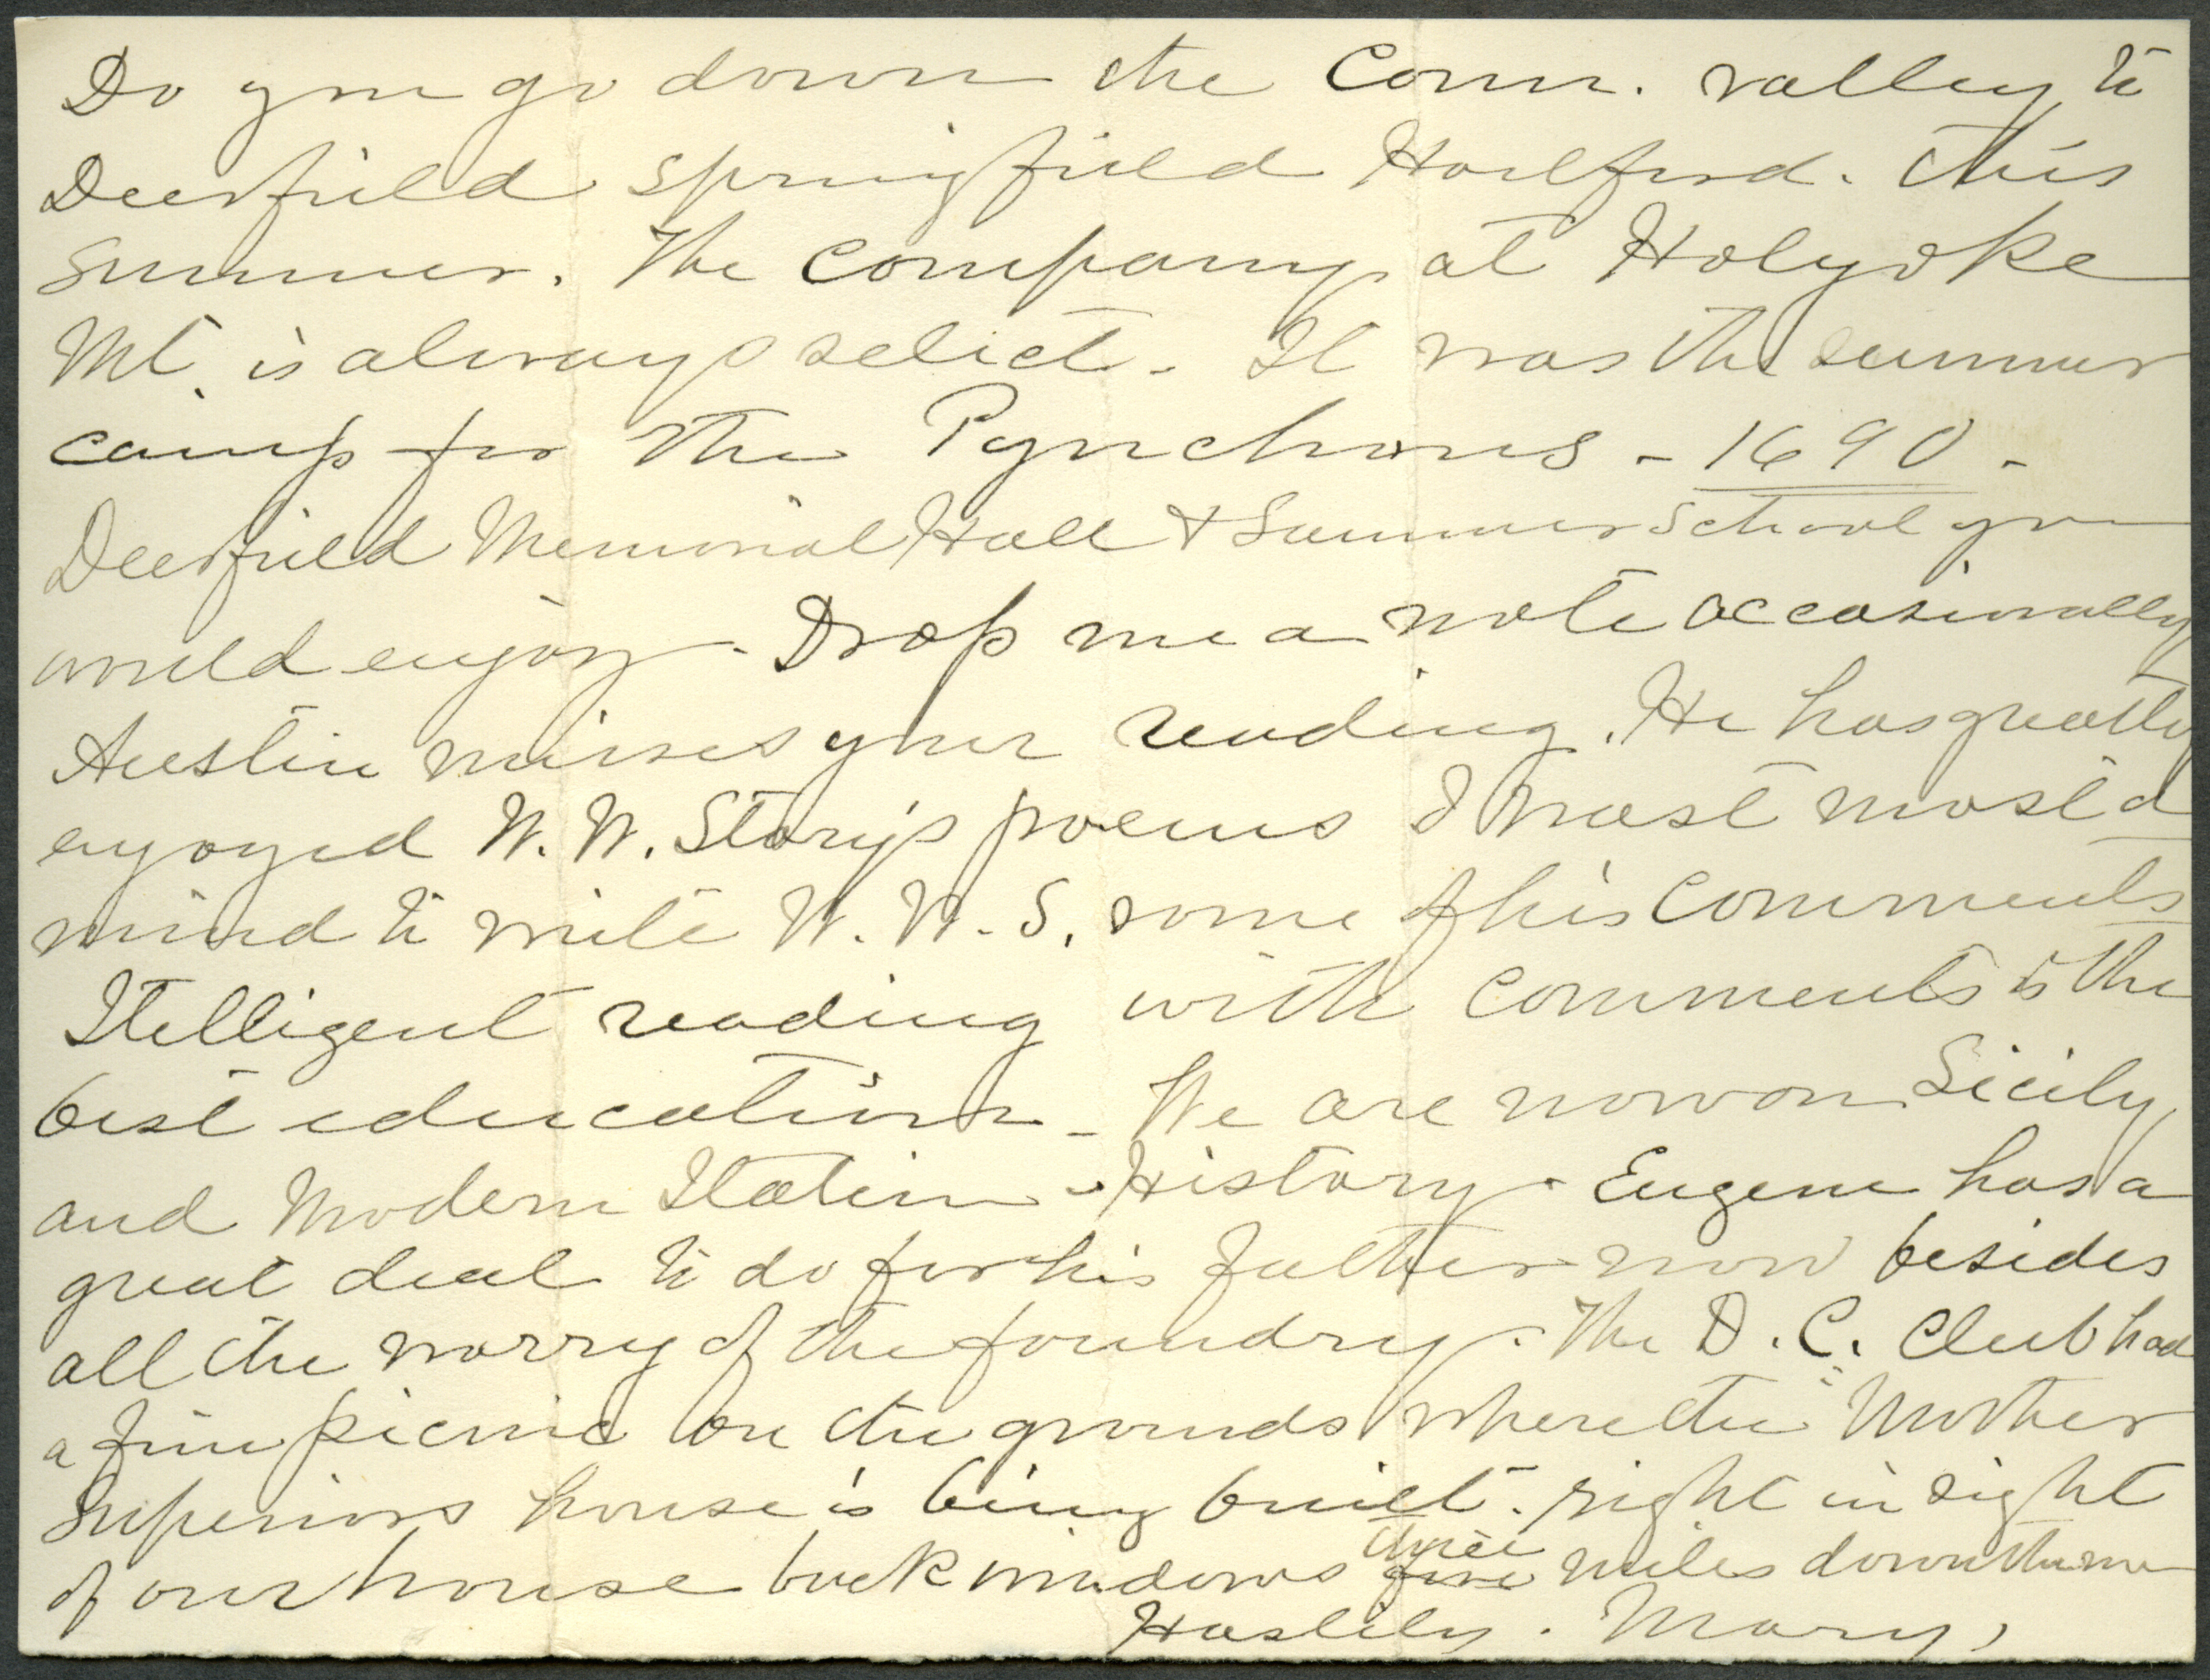 Do you go down the Conn. valley to
Deerfield Springfield Hartford. this
summer. The Company at Holyoke
Mt. is always select - It was the summer
camp for the Pynchons - 1690 -
Deerfield Memorial Hall & Summer School you
would enjoy - Drop me a note occasionally
Austin misses your reading. He has greatly
enjoyed W. W. Story's poems I most most a
mind to write W. W. S. some of his comments
Itelligent reading with comments is the
best education - We are now on Sicily,
and Modern Italian - History - Eugene has a
great deal to do for his father now besides
all the worry of the foundry. The D. C. Club had
a fine picnic on the grounds where the "Mother
Superiors house is being built - right in sight
of our house back windows five three miles down the
Hastily. Mary,